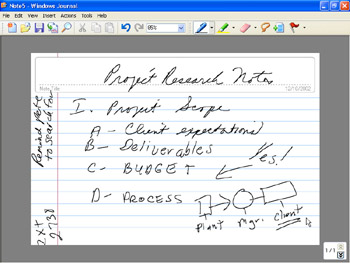 Note5 - Windows Journal
File Edit View Insert Actions Tools Help
Project Research Notes
Note Title
I. Project Scope
A - Client expectations
B - Deliverables
Yes!
C - BUDGET
D - PROCESS
Plant Mgr. Client
Remind Pete
to search for
2738
1/1